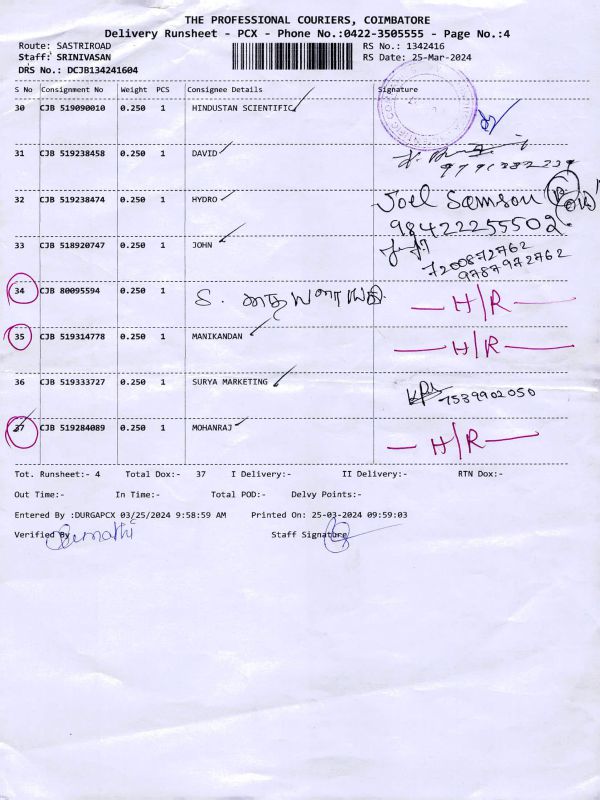 THE PROFESSIONAL COURIERS, COIMBATORE
Delivery Runsheet - PCX - Phone No.:0422-3505555 - Page No.:4
Route: SASTRIROAD RS No.: 1342416
Staff: SRINIVASAN RS Date: 25-Mar-2024
DRS No.: DCJB134241604
S No Consignment No Weight PCS Consignee Details Signature
30 CJB 519090010 0.250 1 HINDUSTAN SCIENTIFIC
31 CJB 519238458 0.250 1 DAVID
9791382239
32 CJB 519238474 0.250 1 HYDRO Joel Samson
98422255502
33 CJB 518920747 0.250 1 JOHN
7200872762
9787972762
34 CJB 80095594 0.250 1 S. H/R
35 CJB 519314778 0.250 1 MANIKANDAN H/R
36 CJB 519333727 0.250 1 SURYA MARKETING 7539902050
37 CJB 519284089 0.250 1 MOHANRAJ H/R
Tot. Runsheet:- 4 Total Dox:- 37 I Delivery:- II Delivery:- RTN Dox:-
Out Time:- In Time:- Total POD:- Delvy Points:-
Entered By :DURGAPCX 03/25/2024 9:58:59 AM Printed On: 25-03-2024 09:59:03
Verified By Staff Signature